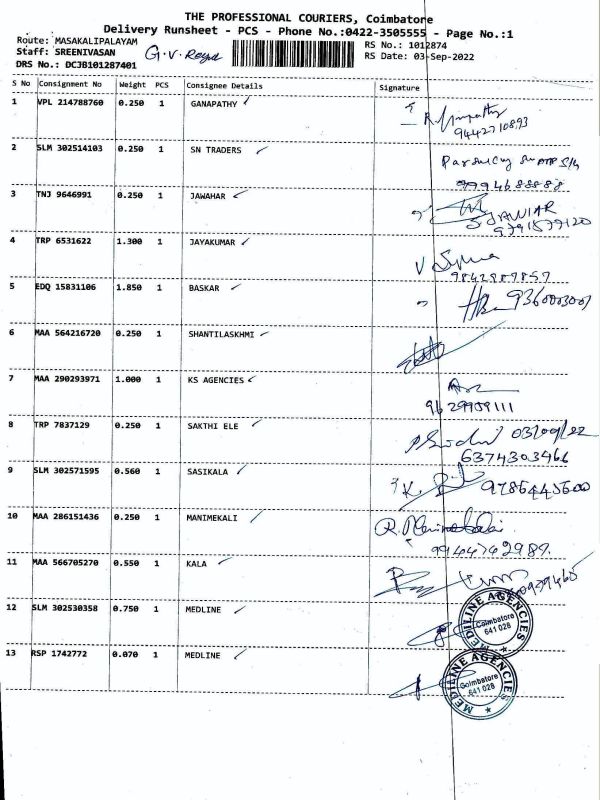 THE PROFESSIONAL COURIERS, Coimbatore
Delivery Runsheet - PCS - Phone No.:0422-3505555 - Page No.:1
Route: MASAKALIPALAYAM
Staff: SREENIVASAN G.V. RS No.: 1012874
DRS No.: DCJB101287401 RS Date: 03-Sep-2022
S No Consignment No Weight PCS Consignee Details Signature
1 VPL 214788760 0.250 1 GANAPATHY
9442710893
2 SLM 302514103 0.250 1 SN TRADERS
9994688888
3 TNJ 9646991 0.250 1 JAWAHAR
9791579120
4 TRP 6531622 1.300 1 JAYAKUMAR
9842987857
5 EDQ 15831106 1.850 1 BASKAR
6 MAA 564216720 0.250 1 SHANTILASKHMI
7 MAA 290293971 1.000 1 KS AGENCIES
9629959111
8 TRP 7837129 0.250 1 SAKTHI ELE
6374303466
9 SLM 302571595 0.560 1 SASIKALA K.
10 MAA 286151436 0.250 1 MANIMEKALI
9944742989.
11 MAA 566705270 0.550 1 KALA
12 SLM 302530358 0.750 1 MEDLINE
MEDILINE AGENCIES
Coimbatore
641 028
13 RSP 1742772 0.070 1 MEDLINE
MEDILINE AGENCIES
Coimbatore
641 028